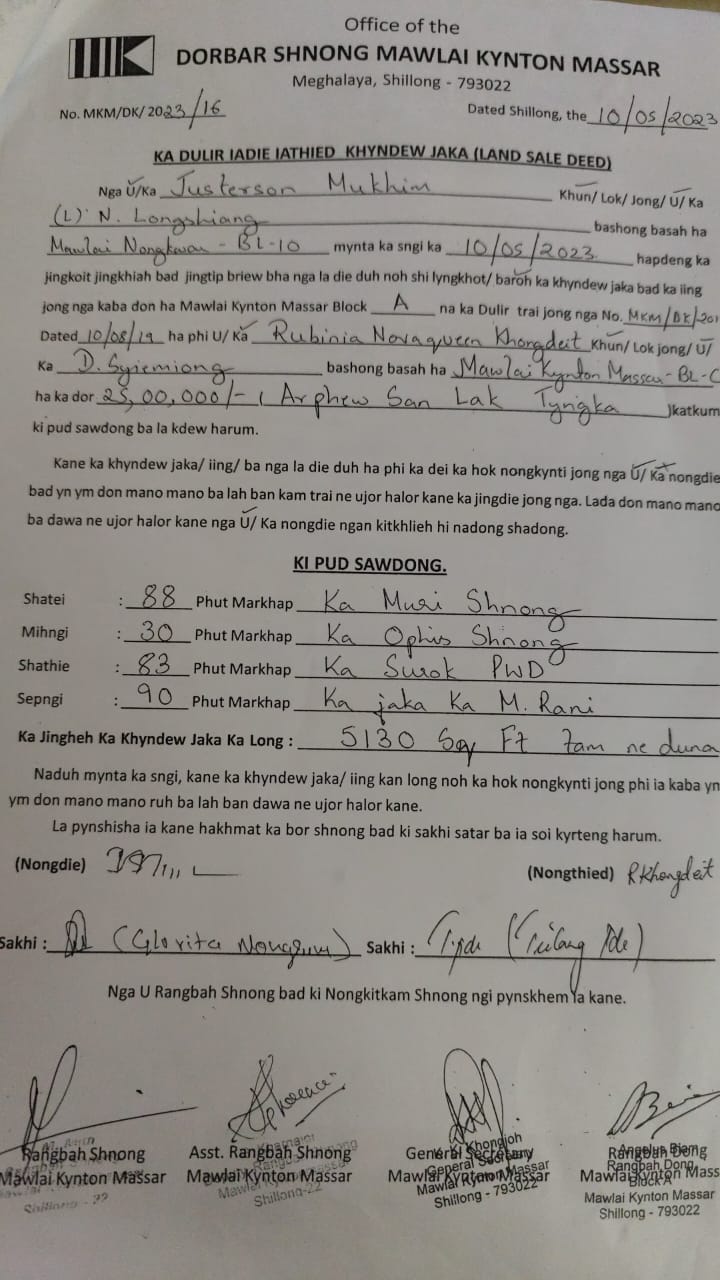 Office of the
DORBAR SHNONG MAWLAI KYNTON MASSAR
Meghalaya, Shillong - 793022
No. MKM/DK/ 2023/16 Dated Shillong, the 10/05/2023
KA DULIR IADIE IATHIED KHYNDEW JAKA (LAND SALE DEED)
Nga U/Ka Justerson Mukhim Khun/ Lok/ Jong/ U/ Ka
(L) N. Longshiang bashong basah ha
Mawlai Nongkwar - BL-10 mynta ka sngi ka 10/05/2023 hapdeng ka
jingkoit jingkhiah bad jingtip briew bha nga la die duh noh shi lyngkhot/ baroh ka khyndew jaka bad ka iing
jong nga kaba don ha Mawlai Kynton Massar Block A na ka Dulir trai jong nga No. MKM/DK/201
Dated 10/08/19 ha phi U/ Ka Rubinia Novaqueen Khongdeit Khun/ Lok jong/ U/
Ka D. Syiemiong bashong basah ha Mawlai Kynton Massar - BL-C
ha ka dor 25,00,000/- ( Arphew San Lak Tyngka )katkum
ki pud sawdong ba la kdew harum.
Kane ka khyndew jaka/ iing/ ba nga la die duh ha phi ka dei ka hok nongkynti jong nga U/ Ka nongdie
bad yn ym don mano mano ba lah ban kam trai ne ujor halor kane ka jingdie jong nga. Lada don mano mano
ba dawa ne ujor halor kane nga U/ Ka nongdie ngan kitkhlieh hi nadong shadong.
KI PUD SAWDONG.
Shatei : 88 Phut Markhap Ka Muri Shnong
Mihngi : 30 Phut Markhap Ka Ophis Shnong
Shathie : 83 Phut Markhap Ka Surok PWD
Sepngi : 90 Phut Markhap Ka jaka Ka M. Rani
Ka Jingheh Ka Khyndew Jaka Ka Long : 5130 Sq Ft tam ne duna
Naduh mynta ka sngi, kane ka khyndew jaka/ iing kan long noh ka hok nongkynti jong phi ia kaba yn
ym don mano mano ruh ba lah ban dawa ne ujor halor kane.
La pynshisha ia kane hakhmat ka bor shnong bad ki sakhi satar ba ia soi kyrteng harum.
(Nongdie) (Nongthied) RKhongdeit
Sakhi : (Glorita Nongrum) Sakhi :
Nga U Rangbah Shnong bad ki Nongkitkam Shnong ngi pynskhem ia kane.
Rangbah Shnong Asst. Rangbah Shnong General Secretary Rangbah Dong
Mawlai Kynton Massar Mawlai Kynton Massar Mawlai Kynton Massar Mawlai Kynton Mass
Shillong - 22 Shillong-22
Khongjoh
General Secretary
Mawlai Kynton Massar
Shillong - 793022
Rangbah Dong
Block A
Mawlai Kynton Massar
Shillong - 793022